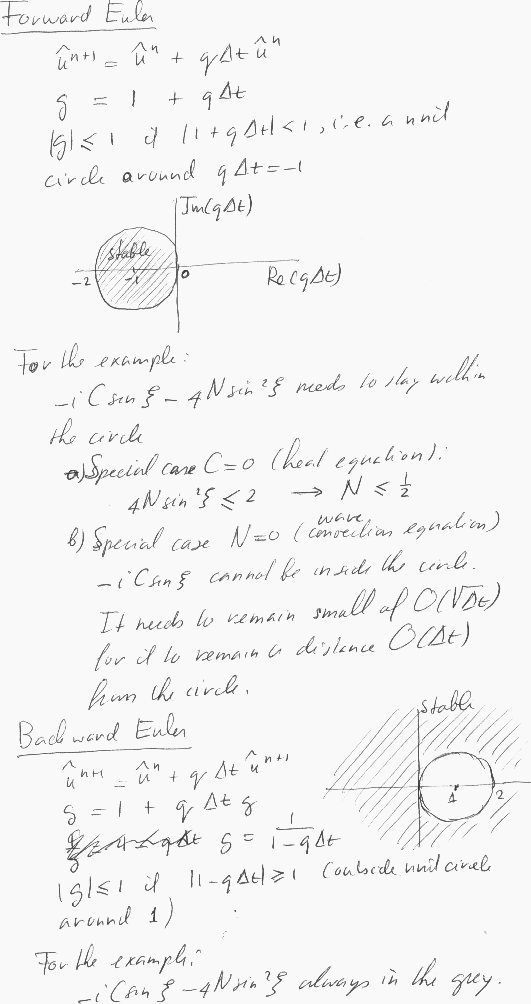 Forward Euler
û^{n+1} = û^n + qΔt û^n
g = 1 + qΔt
|g| ≤ 1 if |1+qΔt| < 1, i.e. a unit
circle around qΔt = -1
Im(qΔt)
stable
-2 -1 0
Re(qΔt)
For the example:
-i C sin ξ - 4N sin²ξ needs to stay within
the circle
a) Special case C=0 (heat equation):
4N sin²ξ ≤ 2 → N ≤ 1/2
wave
b) Special case N=0 (convection equation)
-i C sin ξ cannot be inside the circle.
It needs to remain small of O(√Δt)
for it to remain a distance O(Δt)
from the circle.
stable
Backward Euler
û^{n+1} = û^n + qΔt û^{n+1}
g = 1 + qΔt g
1 2
g = 1/(1-qΔt)
|g| ≤ 1 if |1-qΔt| ≥ 1 (outside unit circle
around 1)
For the example:
-i C sin ξ - 4N sin²ξ always in the grey.